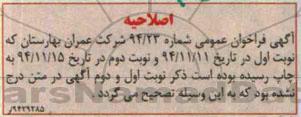 اصلاحیه
آگهی فراخوان عمومی شماره ۹۴/۲۳ شرکت عمران بهارستان که
نوبت اول در تاریخ ۹۴/۱۱/۱۱ و نوبت دوم در تاریخ ۹۴/۱۱/۱۵ به
چاپ رسیده بوده است ذکر نوبت اول و دوم آگهی در متن درج
نشده بود که به این وسیله تصحیح می گردد.
۹۴۲۹۲۸۵/م